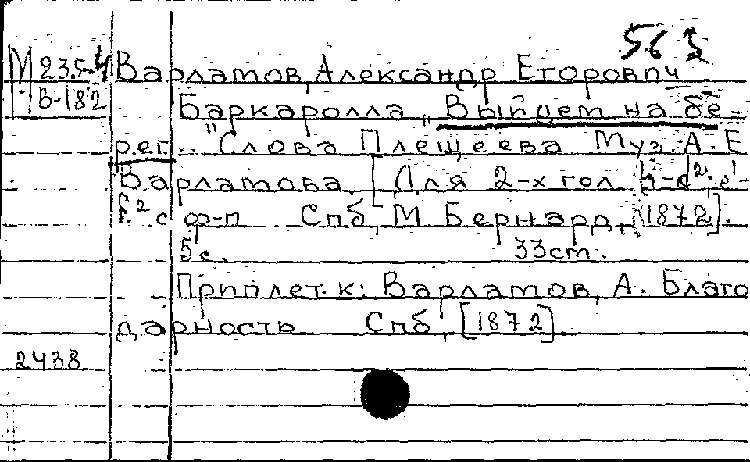 563
М 235-4 Варламов, Александр Егорович
В-182
Баркаролла „Выйдем на бе-
рег..." Слова Плещеева Муз. А. Е.
Варламова. [Для 2-х гол. h-e², e¹-
f² с ф-п Спб, М. Бернард, [1872].
5с. 33см.
Приплет. к: Варламов, А. Благо
дарность Спб, [1872]
2438